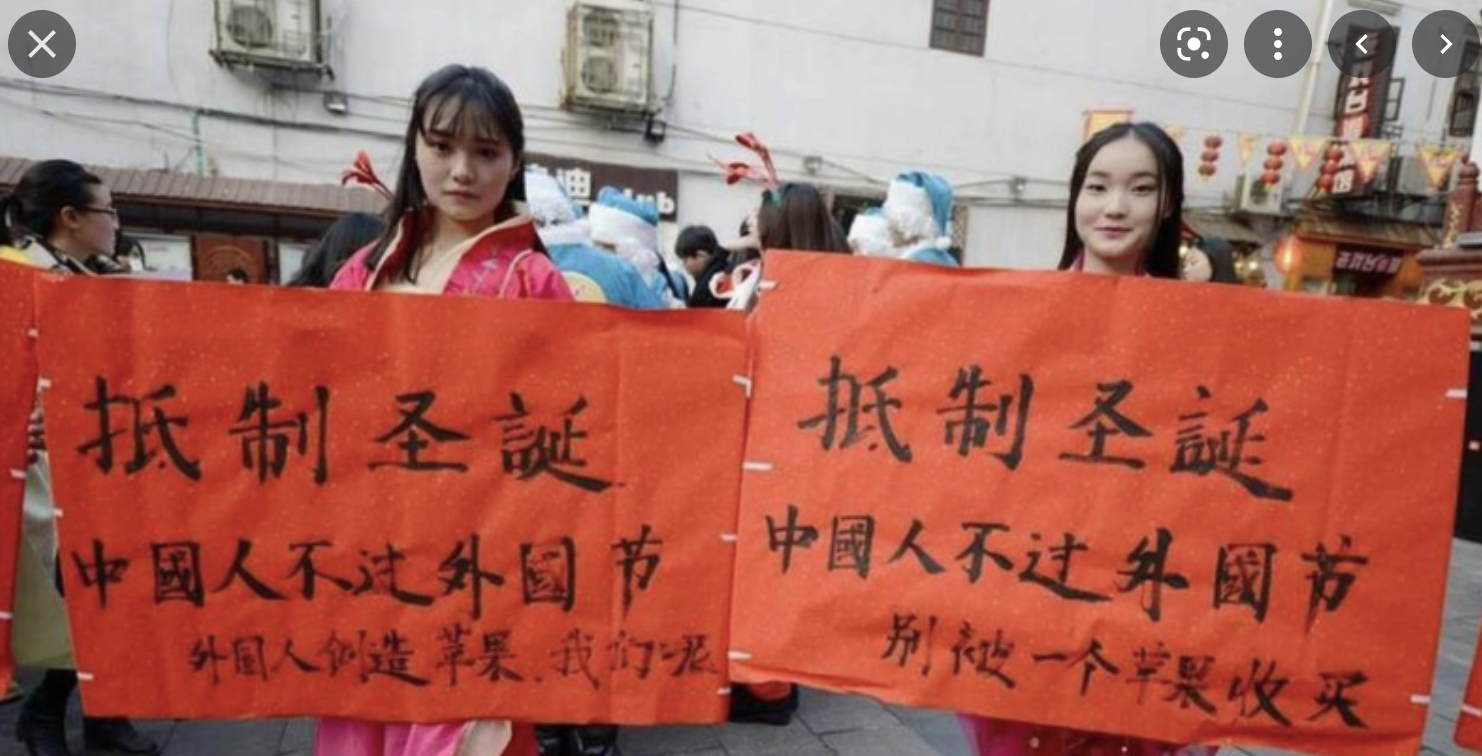 抵制圣誕
中國人不过外國节
外国人创造苹果.我们
抵制圣誕
中國人不过外國节
别被一个苹果收买